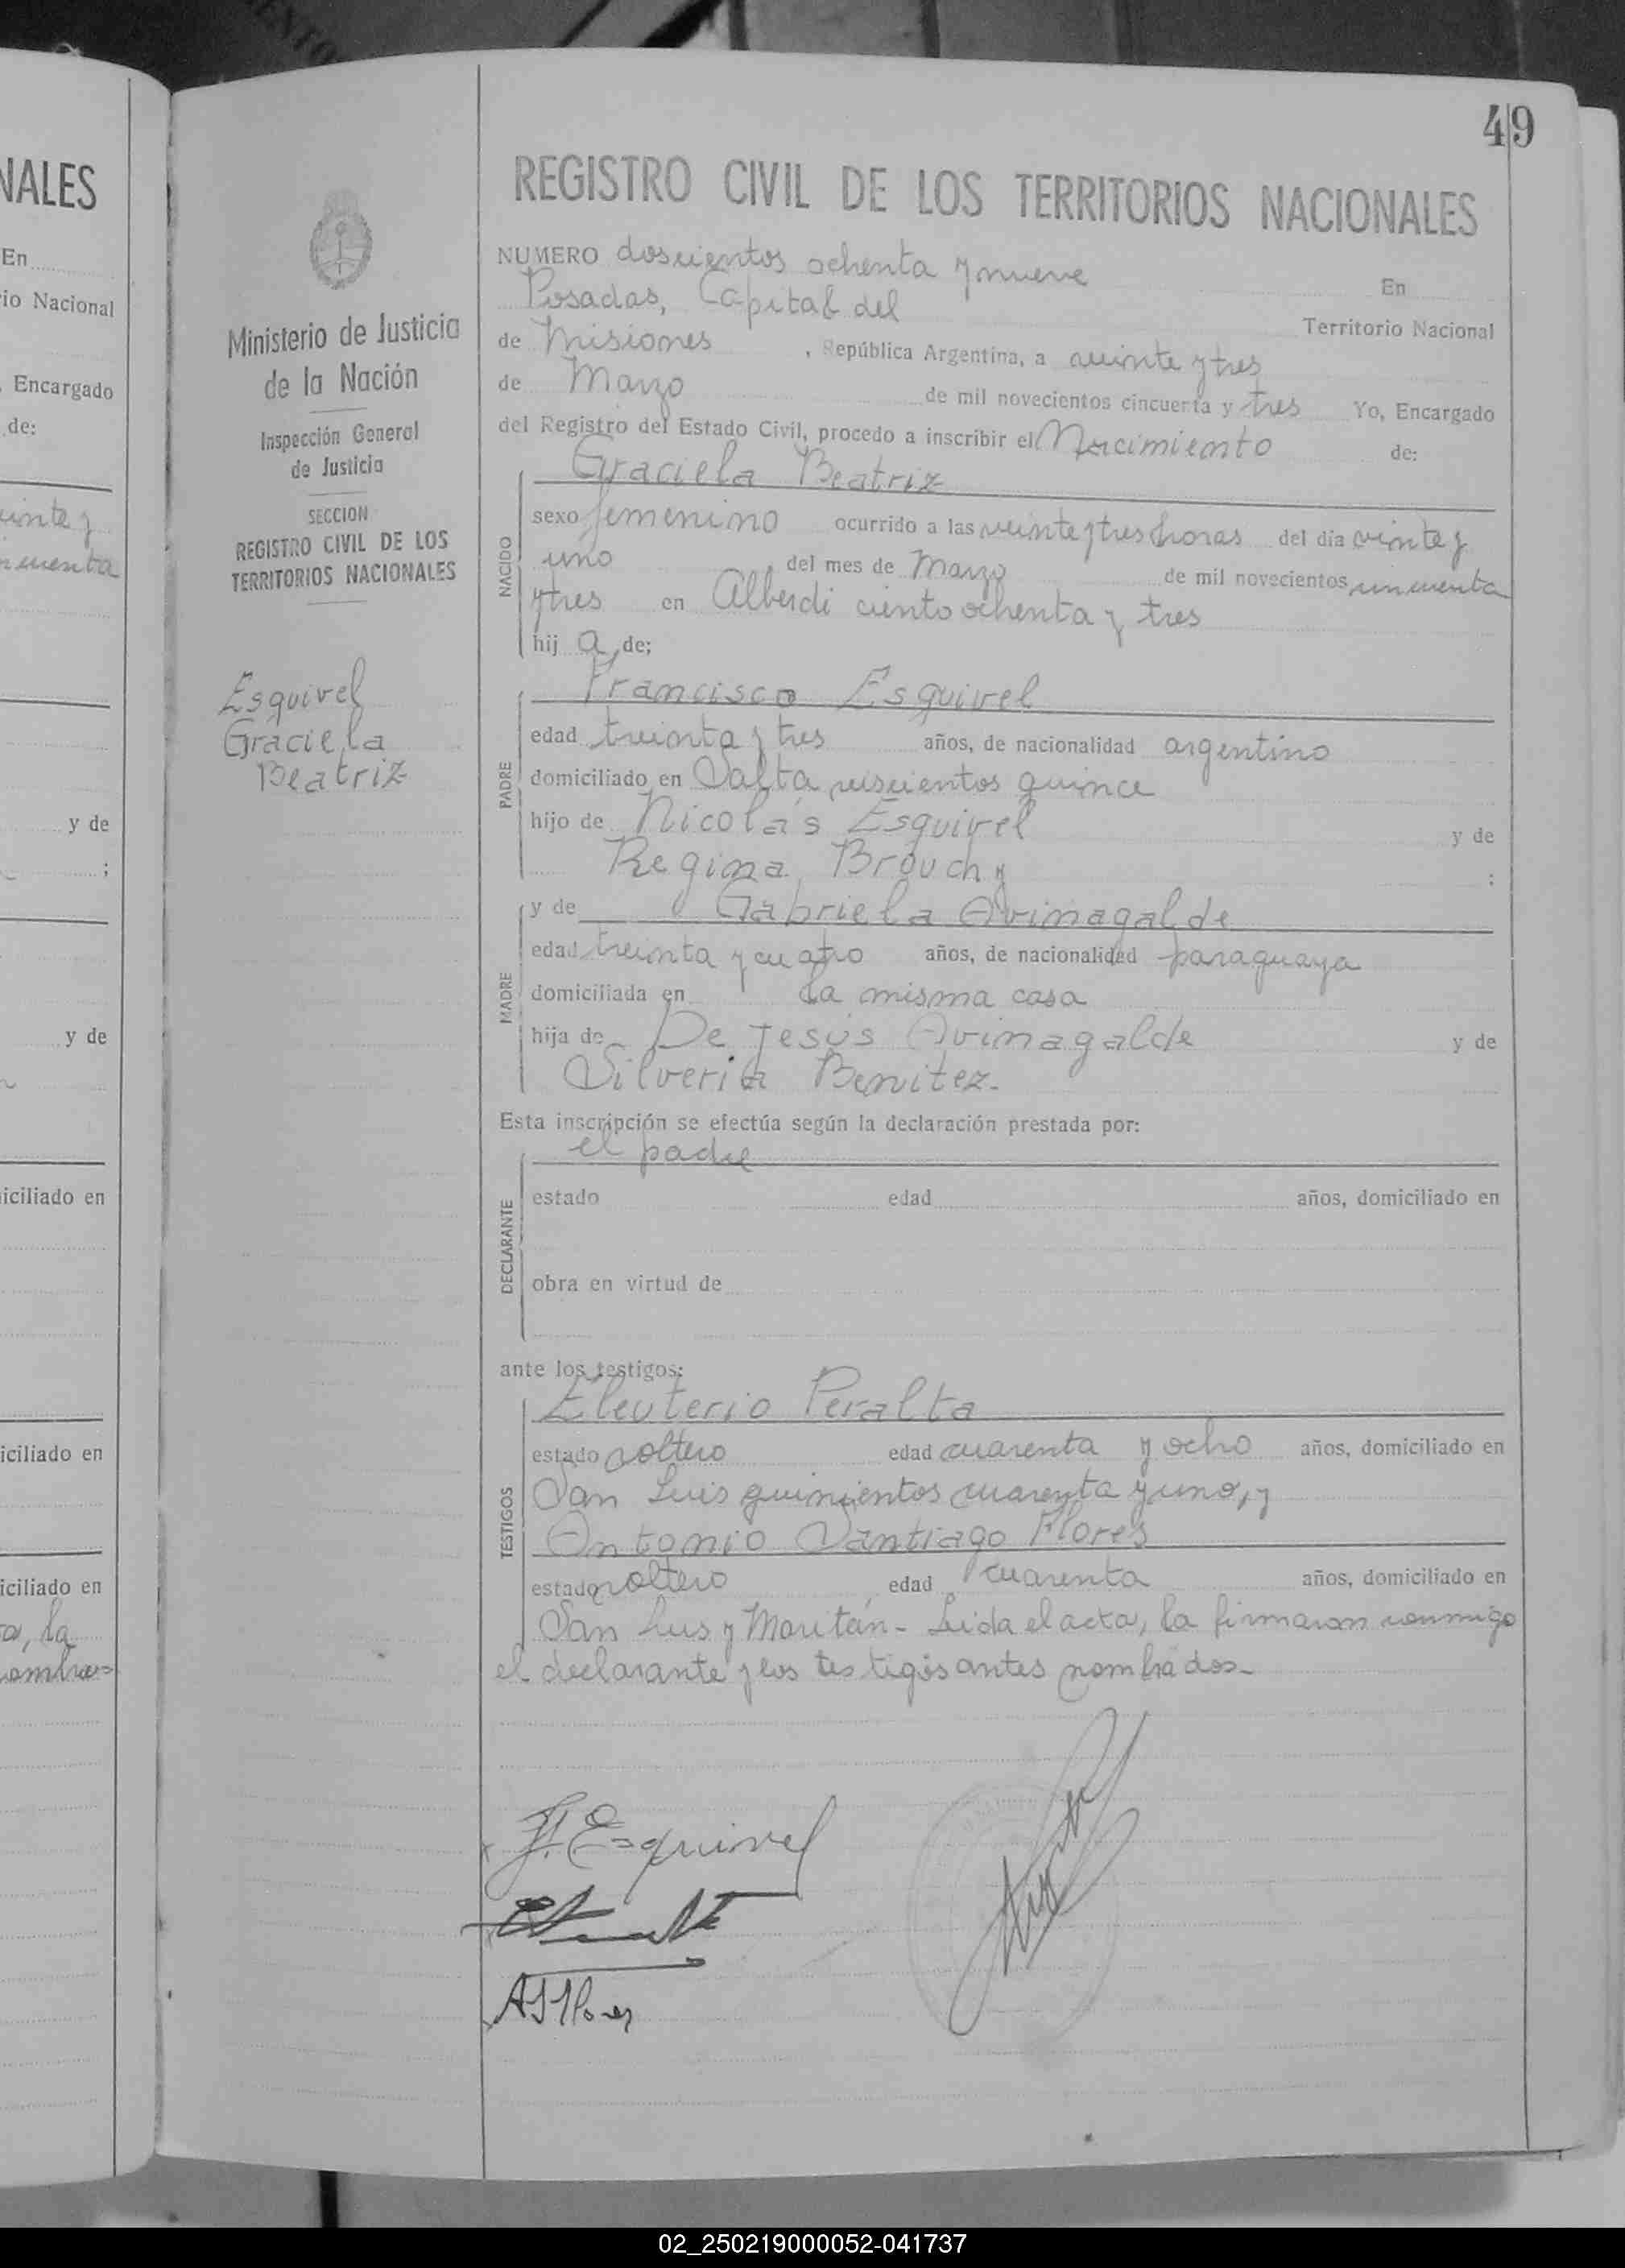 49
NALES
En
io Nacional
Encargado
de:
inte y
y de
;
y de
iciliado en
iciliado en
iciliado en
a, la
Ministerio de Justicia
de la Nación
Inspección General
de Justicia
SECCION
REGISTRO CIVIL DE LOS
TERRITORIOS NACIONALES
Esquivel
Graciela
Beatriz
REGISTRO CIVIL DE LOS TERRITORIOS NACIONALES
NUMERO doscientos ochenta y nueve En
Posadas, Capital del Territorio Nacional
de Misiones, República Argentina, a veinte y tres
de Marzo de mil novecientos cincuenta y tres Yo, Encargado
del Registro del Estado Civil, procedo a inscribir el Nacimiento de:
Graciela Beatriz
NACIDO
sexo femenino ocurrido a las veinte y tres horas del día veinte y
uno del mes de Marzo de mil novecientos cincuenta
y tres en Alberdi ciento ochenta y tres
hij a de;
Francisco Esquivel
PADRE
edad treinta y tres años, de nacionalidad argentino
domiciliado en Salta seiscientos quince
hijo de Nicolás Esquivel y de
Regina Brouchy :
MADRE
y de Gabriela Arimagalde
edad treinta y cuatro años, de nacionalidad paraguaya
domiciliada en la misma casa
hija de De Jesús Arimagalde y de
Silveria Benitez.
Esta inscripción se efectúa según la declaración prestada por:
el padre
DECLARANTE
estado edad años, domiciliado en
obra en virtud de
ante los testigos:
Eleuterio Peralta
TESTIGOS
estado soltero edad cuarenta y ocho años, domiciliado en
San Luis quinientos cuarenta y uno, y
Antonio Santiago Flores
estado soltero edad cuarenta años, domiciliado en
San Luis y Moritán - Leida el acta, la firmaron conmigo
el declarante y los testigos antes nombrados.
F. Esquivel
ASFlores
02_250219000052-041737